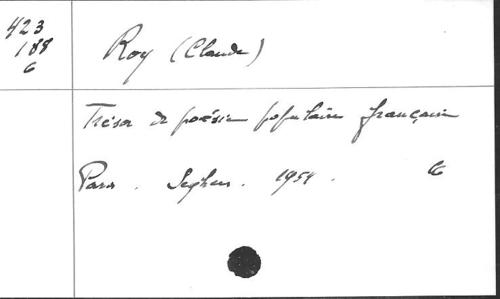 423
188
6
Roy (Claude)
Trésor de poésie populaire française
Paris. Seghers. 1954.